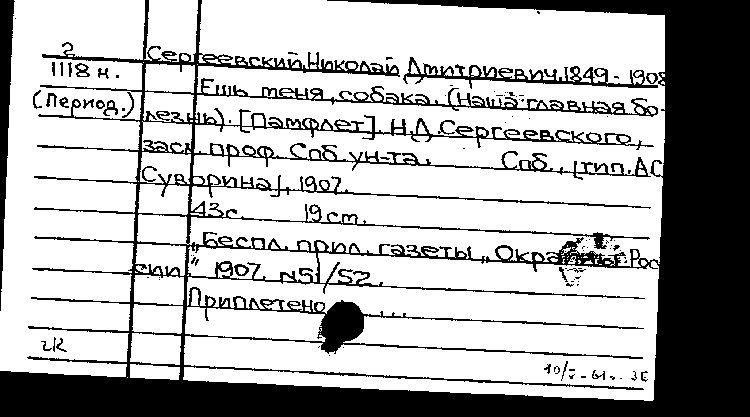 2 Сергеевский, Николай Дмитриевич, 1849-1908
1118 н. Ешь меня, собака. (Наша главная бо-
(Период.) лезнь). [Памфлет]. Н.Д. Сергеевского,
засл. проф. Спб. ун-та. Спб., [тип. А.С.
Суворина], 1907.
43 с. 19 см.
„Беспл. прил. газеты „Окраины Рос
сии" 1907. №51/52.
Приплетено ...
2К
10/V-61г. ЗЕ